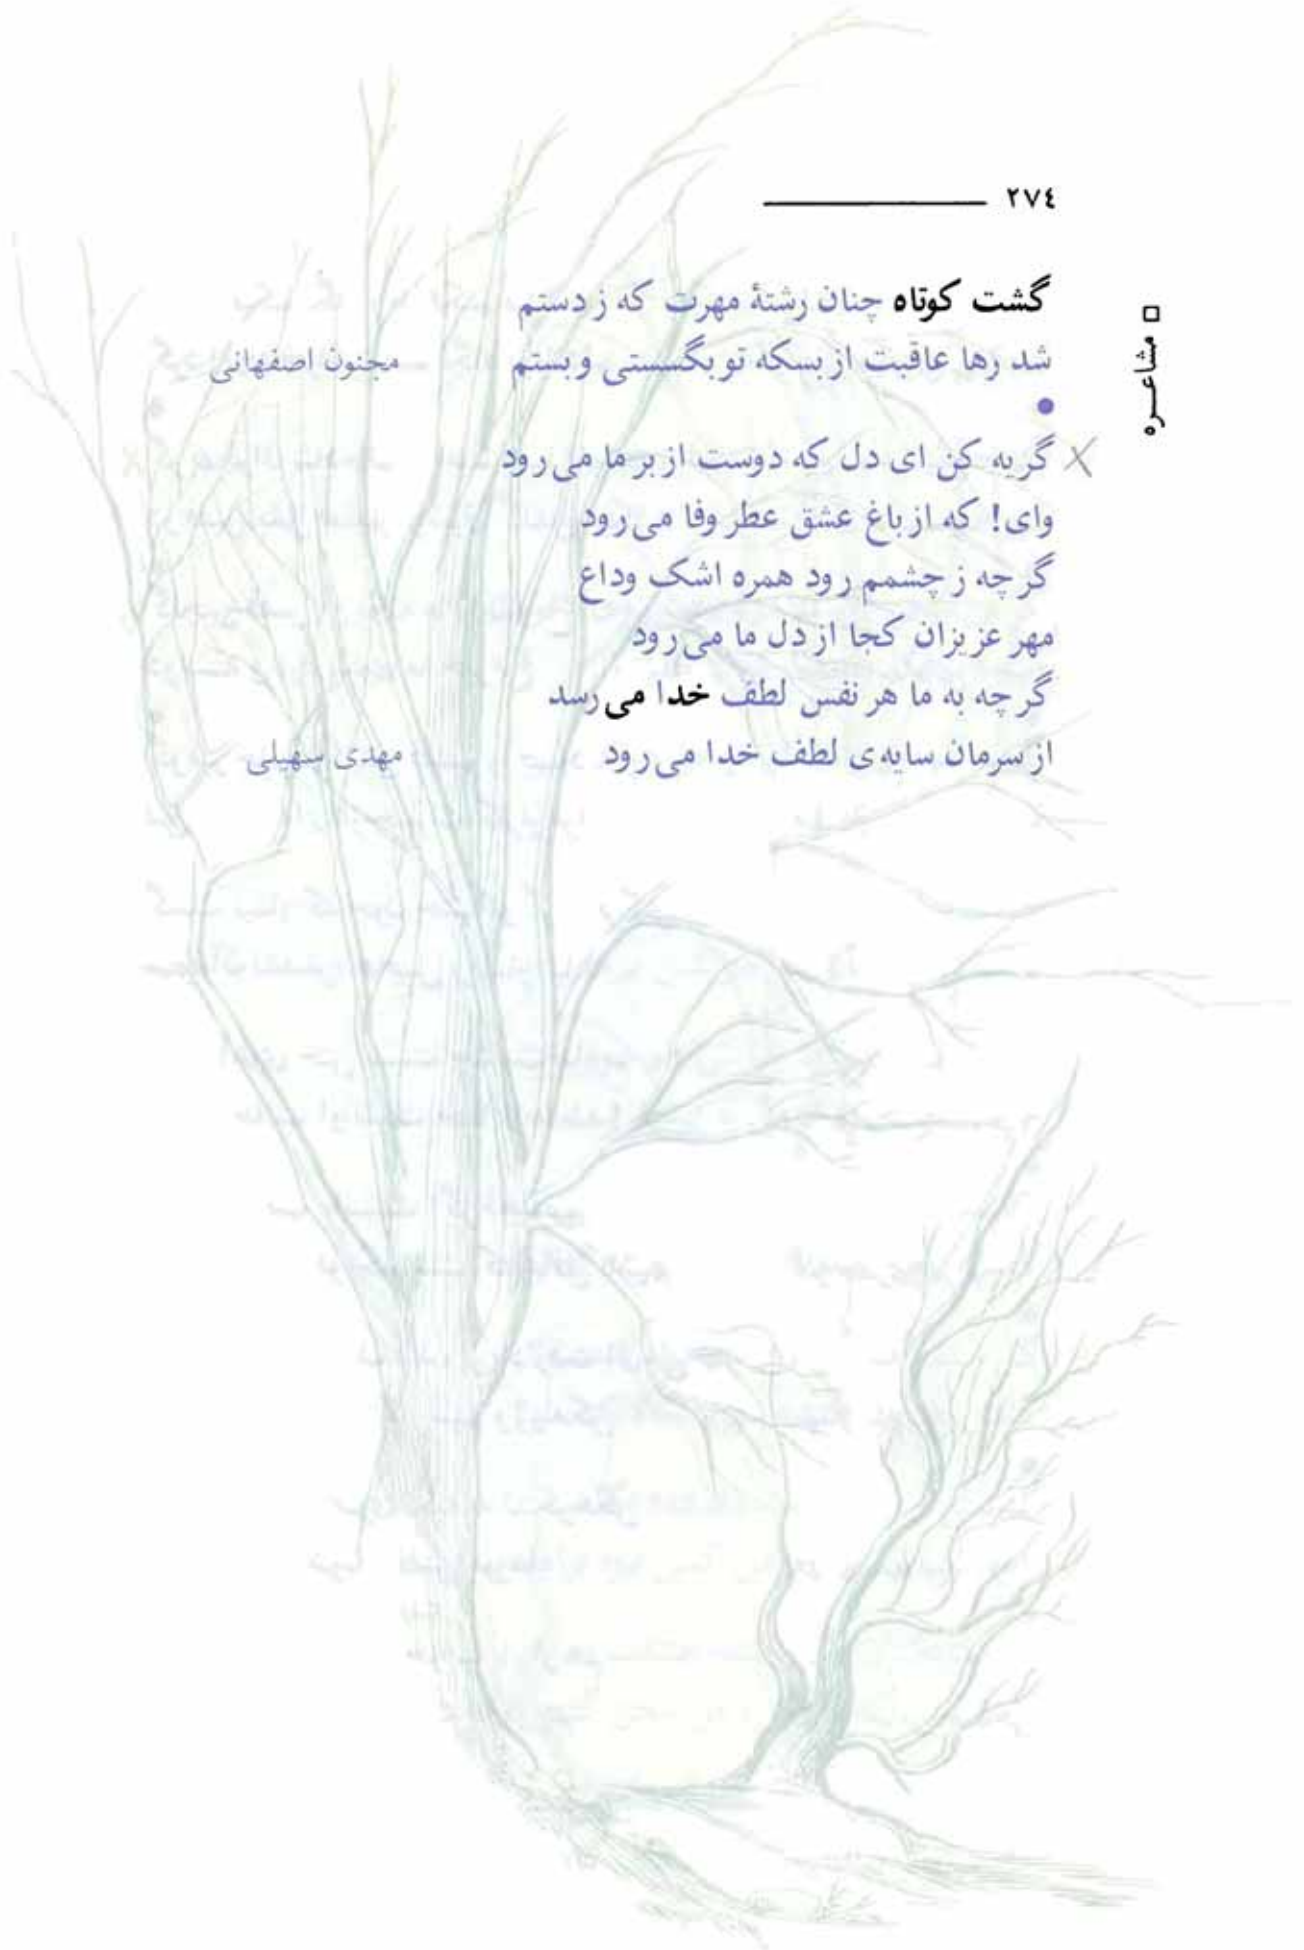 ٢٧٤
□ مشاعـــره
گشت کوتاه چنان رشتهٔ مهرت که ز دستم
شد رها عاقبت از بسکه تو بگسستی و بستم مجنون اصفهانی
●
گریه کن ای دل که دوست از بر ما می‌رود
وای! که از باغ عشق عطر وفا می‌رود
گرچه ز چشمم رود همره اشک وداع
مهر عزیزان کجا از دل ما می‌رود
گرچه به ما هر نفس لطف خدا می‌رسد
از سرمان سایه‌ی لطف خدا می‌رود مهدی سهیلی